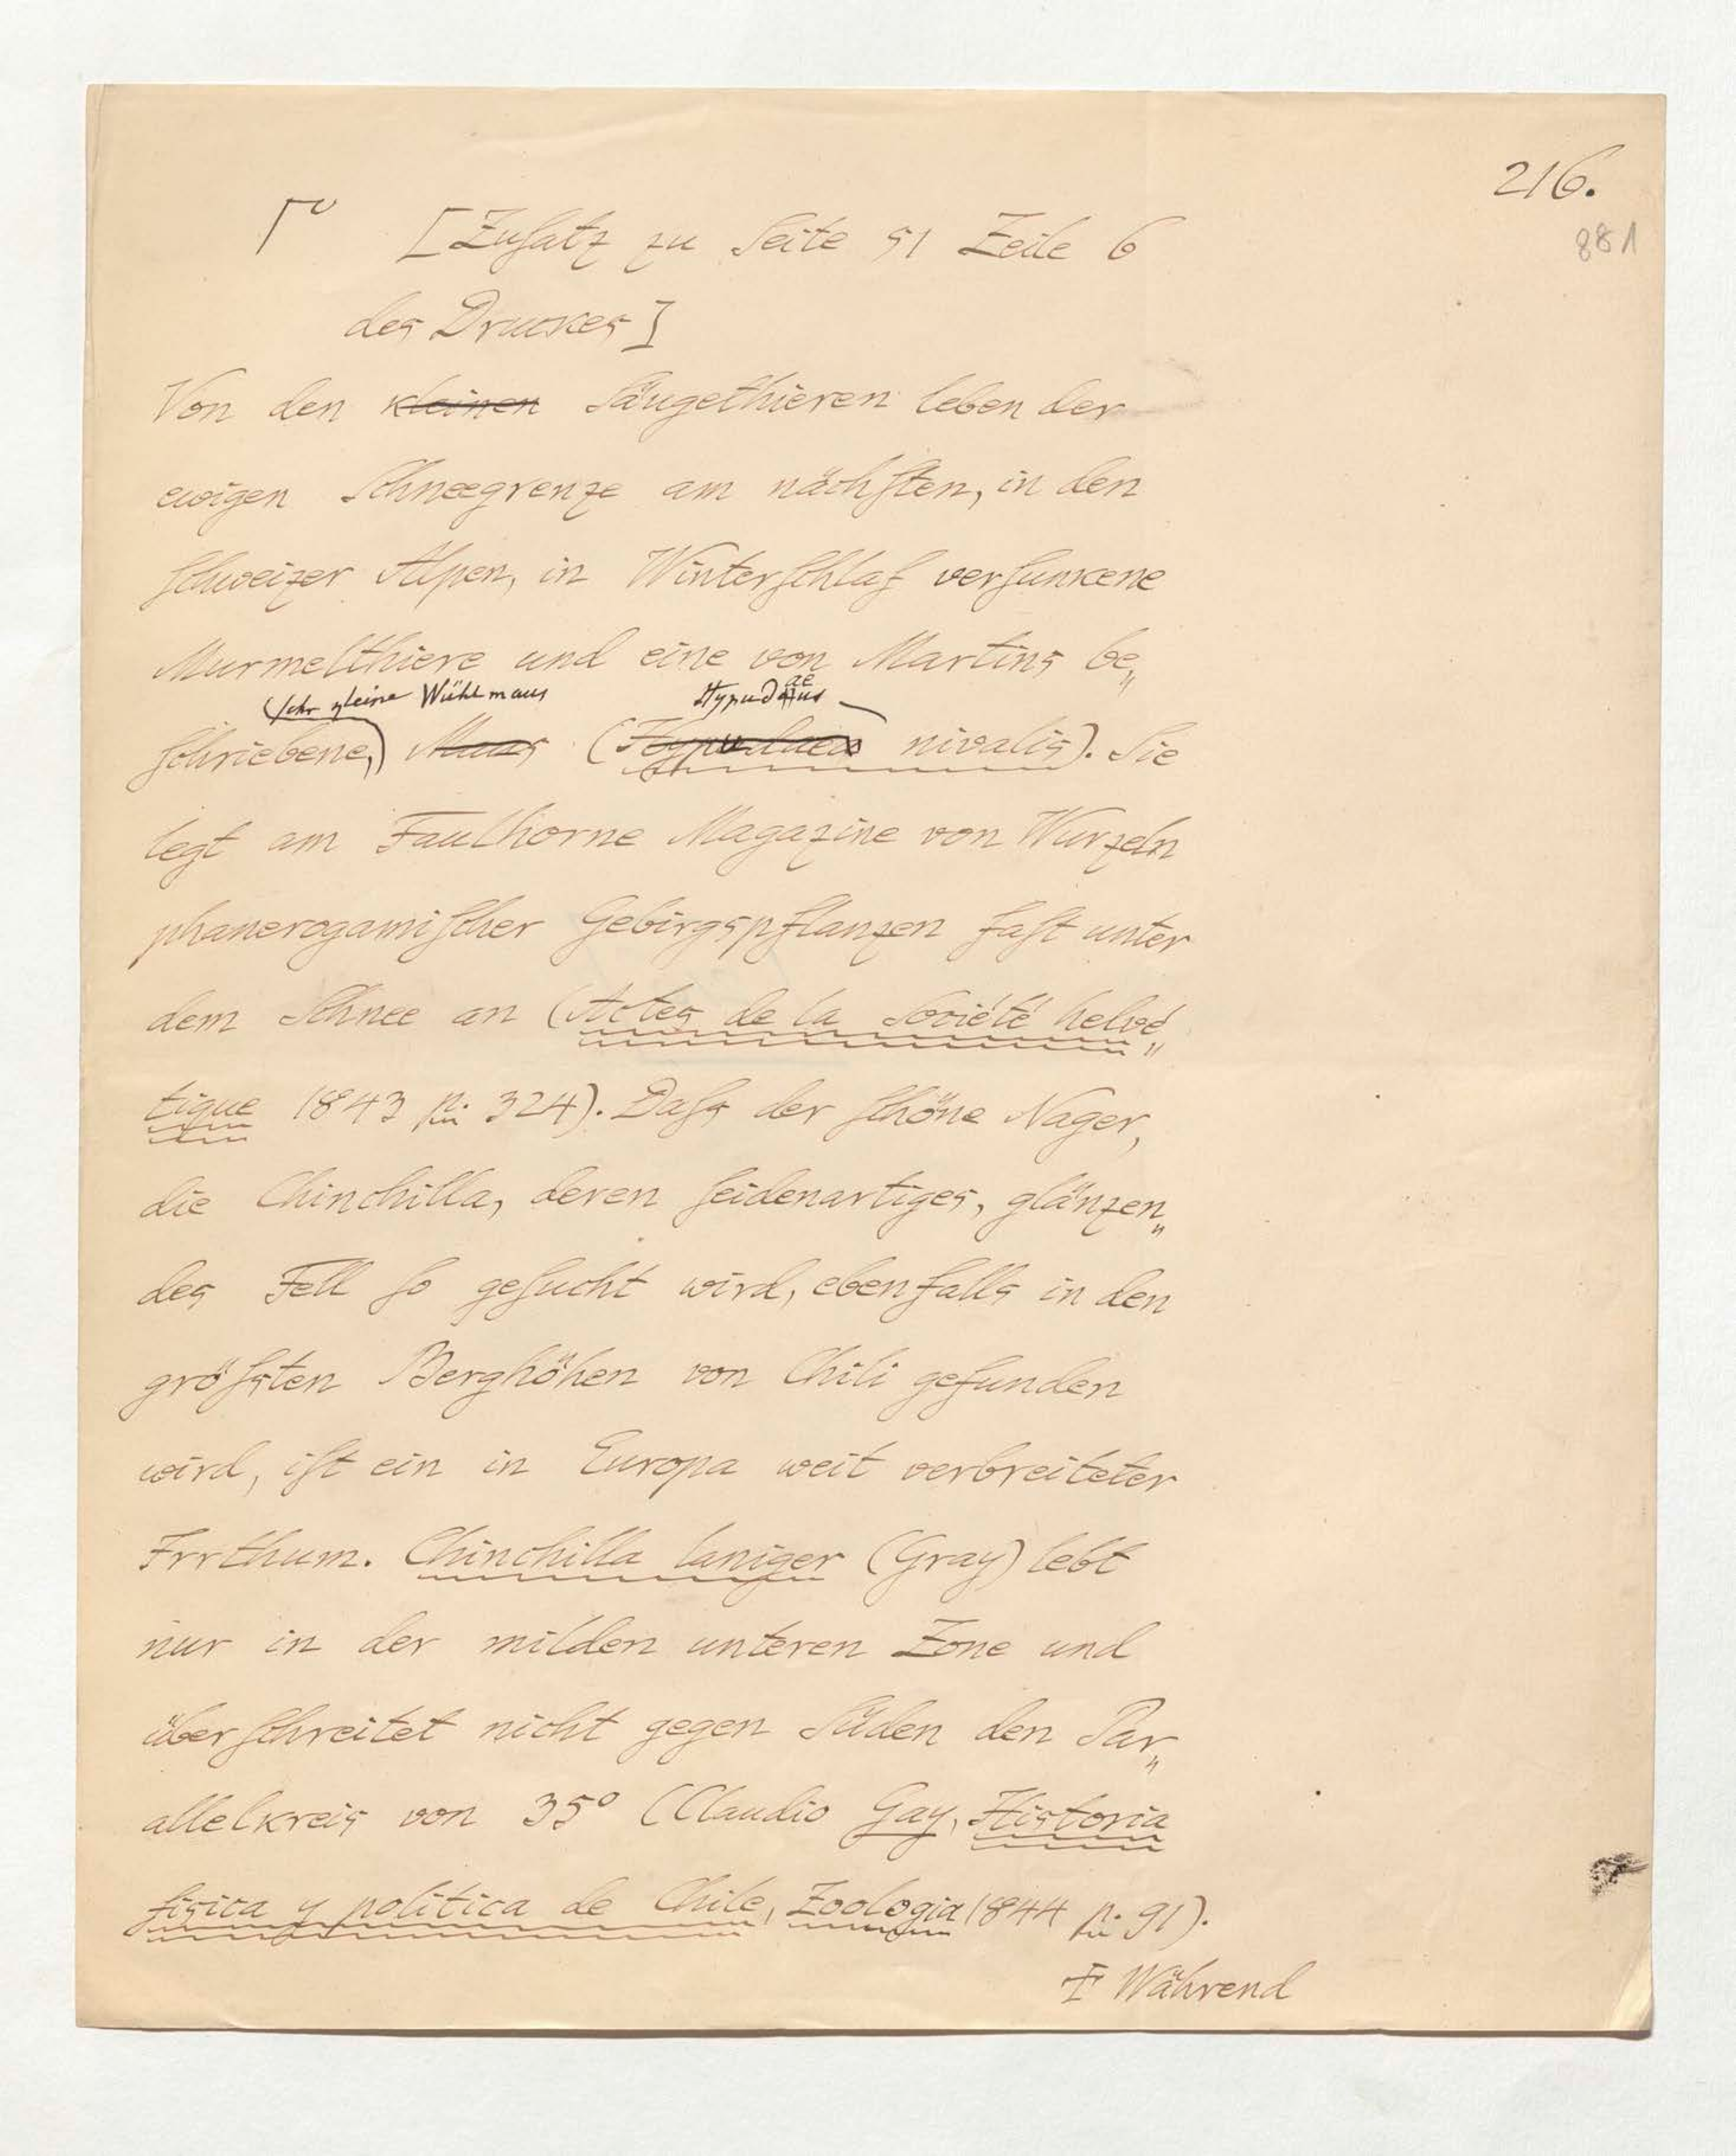 216.
881
[Zusatz zu Seite 51 Zeile 6
des Druckes]
Von den kleinen Säugethieren leben der
ewigen Schneegrenze am nächsten, in den
Schweizer Alpen, in Winterschlaf versunkene
Murmelthiere und eine von Martins be„
sehr kleine Wühlmaus Hypudaeus
schriebene, Maus ( nivalis). Sie
legt am Faulhorne Magazine von Wurzeln
phanerogamischer Gebirgspflanzen fast unter
dem Schnee an (Actes de la Société helvé„
tique 1843 p. 324). Dass der schöne Nager,
die Chinchilla, deren seidenartiges, glänzen„
des Fell so gesucht wird, ebenfalls in den
grössten Berghöhen von Chili gefunden
wird, ist ein in Europa weit verbreiteter
Irrthum. Chinchilla laniger (Gray) lebt
nur in der milden unteren Zone und
überschreitet nicht gegen Süden den Par„
allelkreis von 35° (Claudio Gay, Historia
fisica y politica de Chile, Zoologia 1844 p. 91).
Während